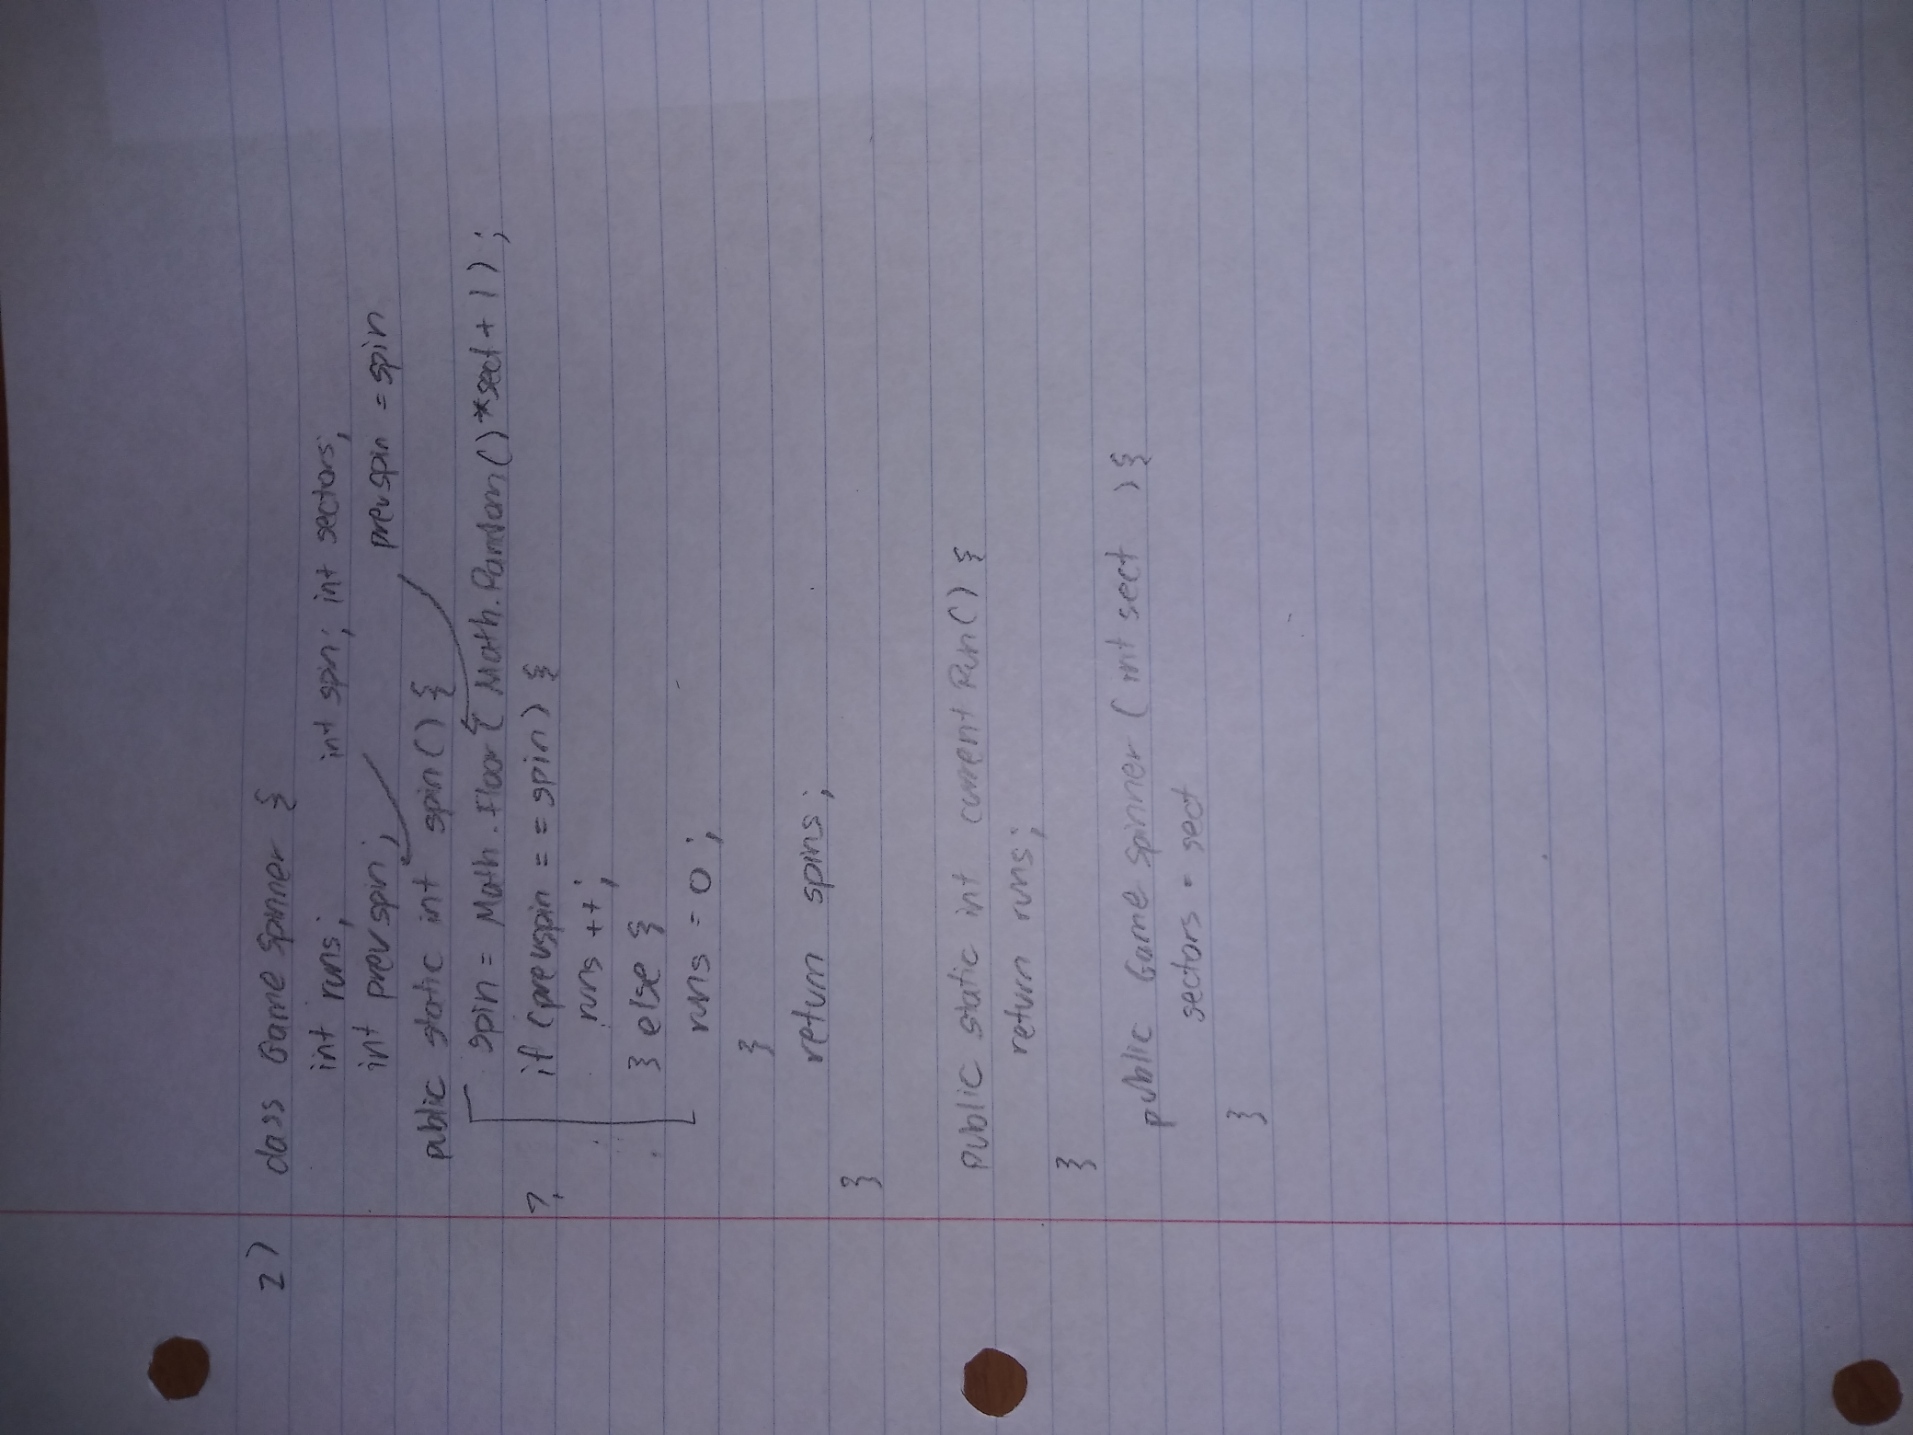 2) class Game Spinner {
int runs; int spin; int sectors;
int prevspin; prevspin = spin
public static int spin() {
spin = Math.Floor( Math.Random()*sect + 1);
? if (prevspin == spin) {
runs ++;
} else {
runs = 0;
}
return spins;
}
public static int currentRun() {
return runs;
}
public Game Spinner (int sect ) {
sectors = sect
}